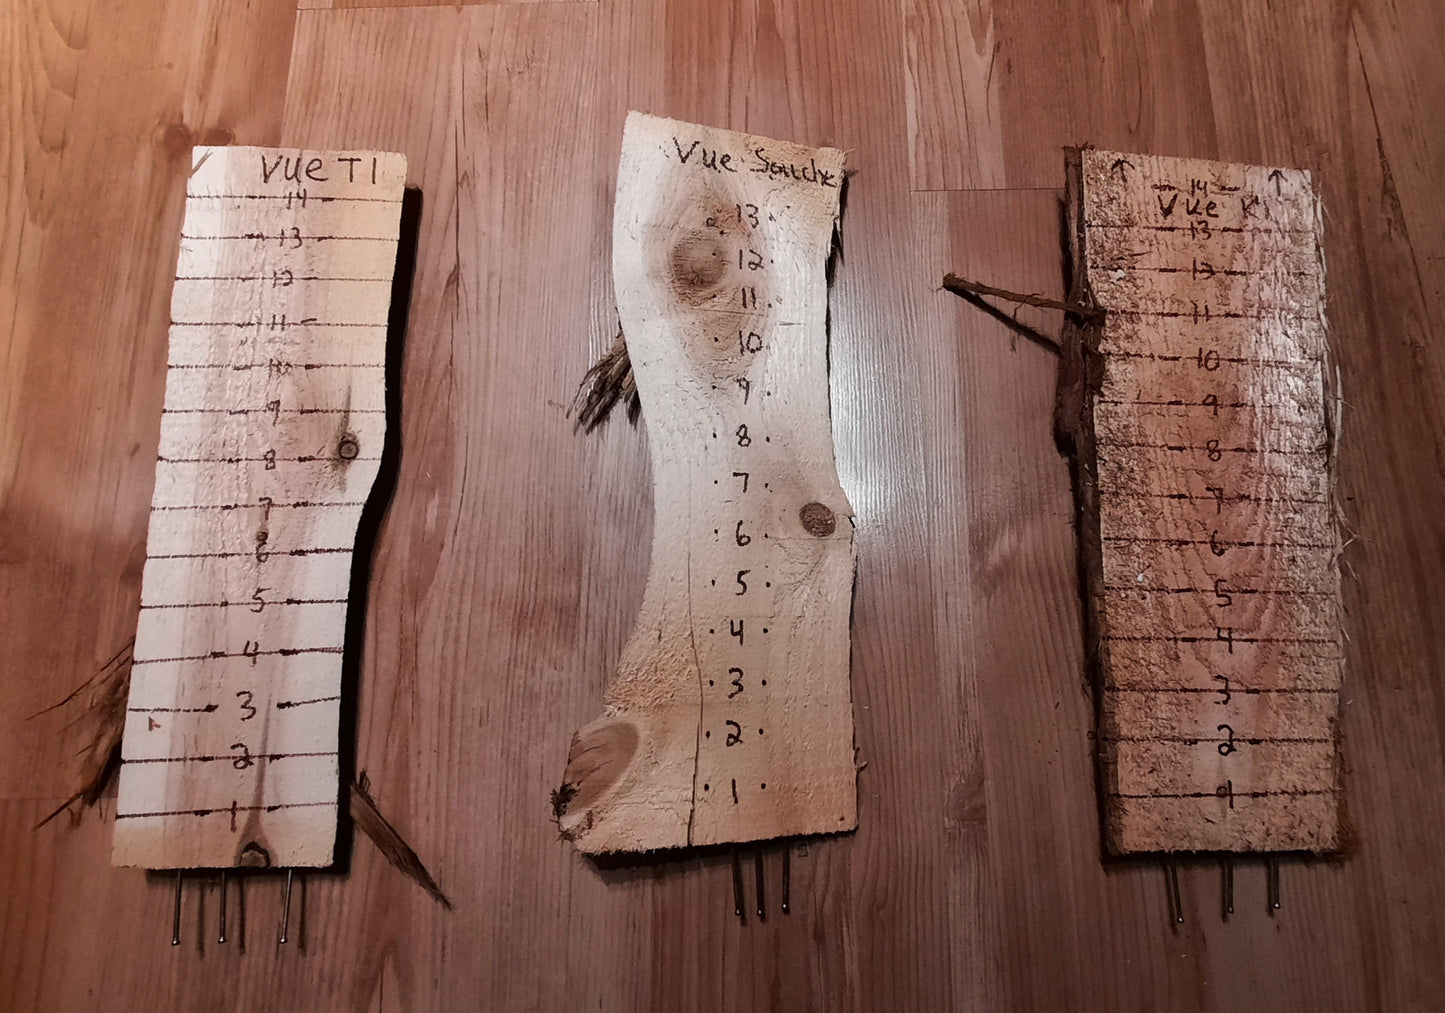 Vue T1
14
13
12
11
10
9
8
7
6
5
4
3
2
1
Vue Souche
13
12
11
10
9
8
7
6
5
4
3
2
1
14
Vue K1
13
13
11
10
9
8
7
6
5
4
3
2
1